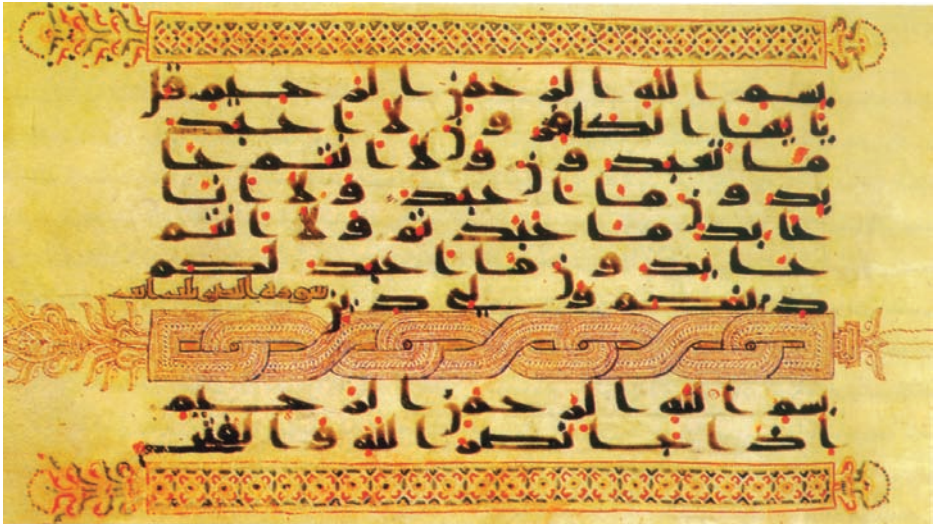 بسم الله الرحمن الرحيم قل
يا يها الكافرون لا اعبد
ما تعبدون ولا انتم عا
بدون ما اعبد ولا انا
عابد ما عبدتم ولا انتم
عابدون ما اعبد لكم
سورة
دينكم ولي دين
بسم الله الرحمن الرحيم
اذا جا نصر الله والفتح